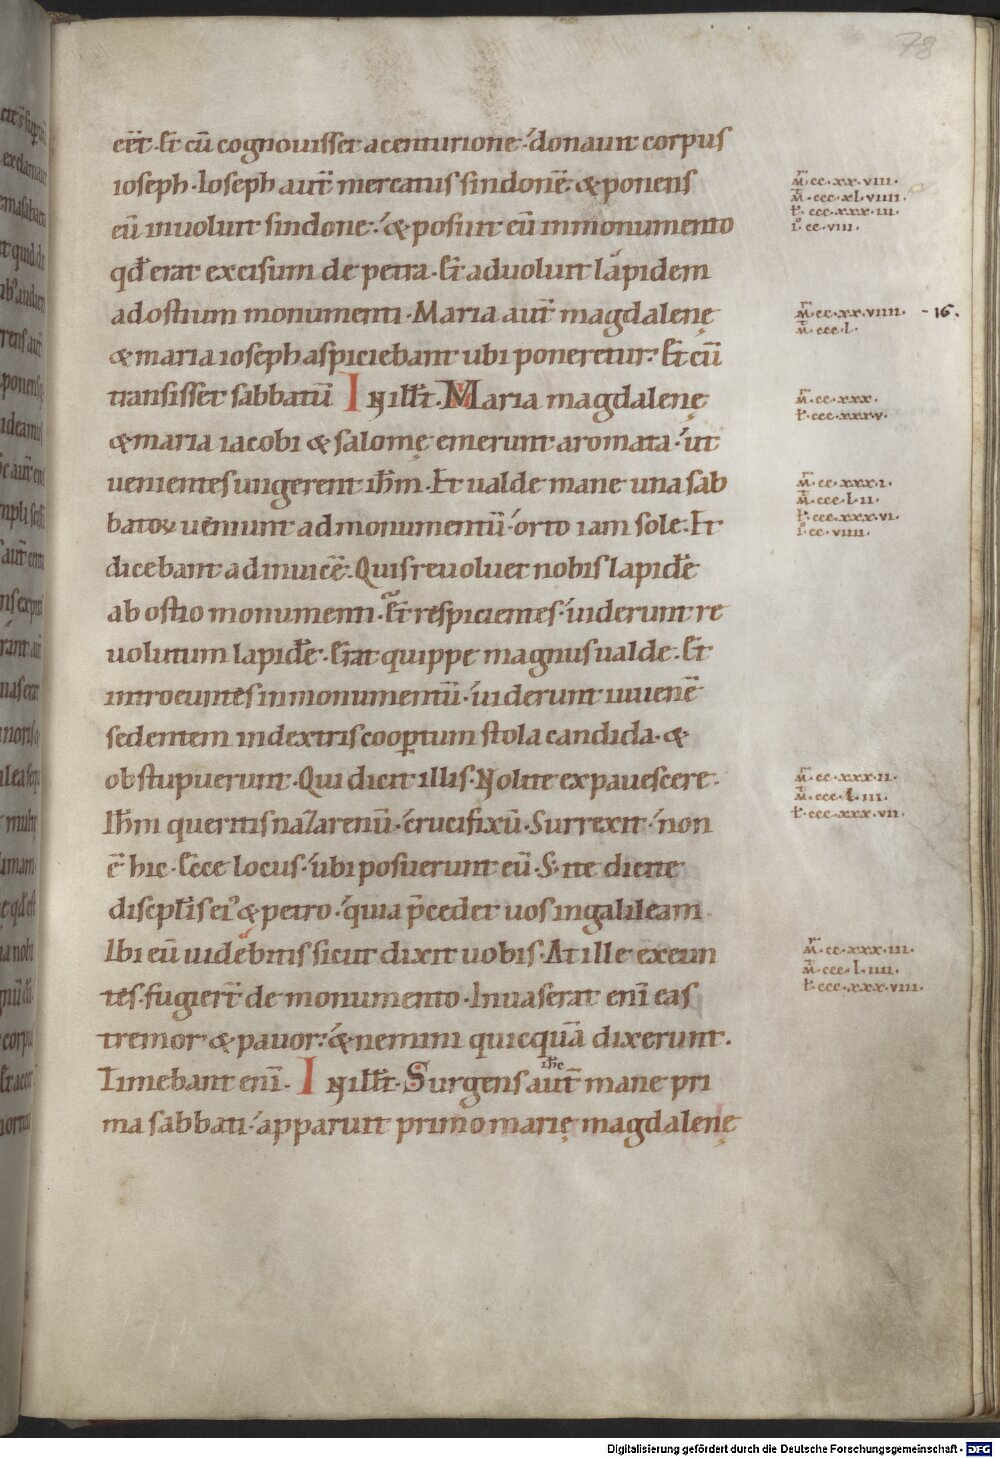 78
eēt. Et cū cognouisset a centurione. donauit corpus
ioseph. Ioseph aut̄ mercatus sindonē. & ponens
eū inuoluit sindone. & posuit eū in monumento
qđ erat excisum de petra. Et aduoluit lapidem
ad ostium monumenti. Maria aut̄ magdalenę
& maria ioseph aspiciebant ubi poneretur. Et cū
transisset sabbatū IN ill̄t. Maria magdalenę
& maria iacobi & salomę emerunt aromata. ut
uenientes ungerent ih̄m. Et ualde mane una sab
batoꝝ ueniunt ad monumentū. orto iam sole. Et
dicebant ad inuicē. Quis reuoluet nobis lapidē
ab ostio monumenti. Et respicientes. uiderunt re
uolutum lapidē. Erat quippe magnus ualde. Et
introeuntes in monumentū. uiderunt iuuenē
sedentem in dextris coopertum stola candida. &
obstupuerunt. Qui dicit illis. Nolite expauescere.
Ih̄m queritis nazarenū. crucifixū. Surrexit. non
ē hic. Ecce locus. ubi posuerunt eū. S; ite dicite
discipl̄is ei' & petro. quia p̄cedet uos in galileam.
Ibi eū uidebitis sicut dixit uobis. At ille exeun
tes. fugier̄t de monumento. Inuaserat enī eas
tremor & pauor. & nemini quicquā dixerunt.
Timebant enī. IN ill̄t. Surgens aut̄ ih̄c mane pri
ma sabbati. apparuit primo marię magdalenę
m̄. cc. xx. viii.
m̄. ccc. xl. viiii.
l̄. ccc. xxx. iii.
i. cc. viii.
m̄. cc. xx. viiii. - 16.
m̄. ccc. l.
m̄. cc. xxx.
l̄. ccc. xxx. v.
m̄. cc. xxx. i.
m̄. ccc. l. ii.
l̄. ccc. xxx. vi.
i. cc. viiii.
m̄. cc. xxx. ii.
m̄. ccc. l. iii.
l̄. ccc. xxx. vii.
m̄. cc. xxx. iii.
m̄. ccc. l. iiii.
l̄. ccc. xxx. viii.
Digitalisierung gefördert durch die Deutsche Forschungsgemeinschaft - DFG